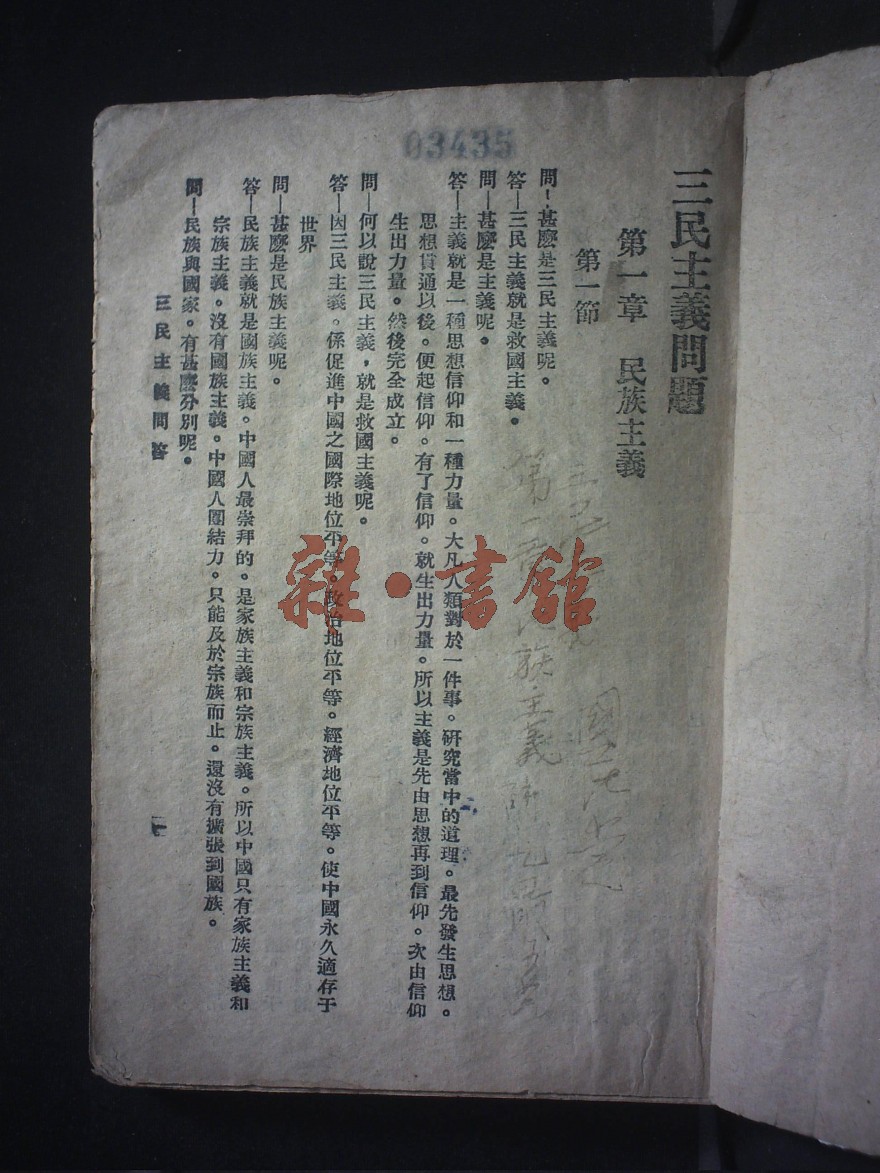 03435
三民主義問題
第一章　民族主義
第一節
問—甚麼是三民主義呢。
答—三民主義就是救國主義。
問—甚麼是主義呢。
答—主義就是一種思想信仰和一種力量。大凡人類對於一件事。研究當中的道理。最先發生思想。
思想貫通以後。便起信仰。有了信仰。就生出力量。所以主義是先由思想再到信仰。次由信仰
生出力量。然後完全成立。
問—何以說三民主義，就是救國主義呢。
答—因三民主義。係促進中國之國際地位平等。政治地位平等。經濟地位平等。使中國永久適存于
世界
問—甚麼是民族主義呢。
答—民族主義就是國族主義。中國人最崇拜的。是家族主義和宗族主義。所以中國只有家族主義和
宗族主義。沒有國族主義。中國人團結力。只能及於宗族而止。還沒有擴張到國族。
問—民族與國家。有甚麼分別呢。
三民主義問答
一
第一章 族主義
雜·書館